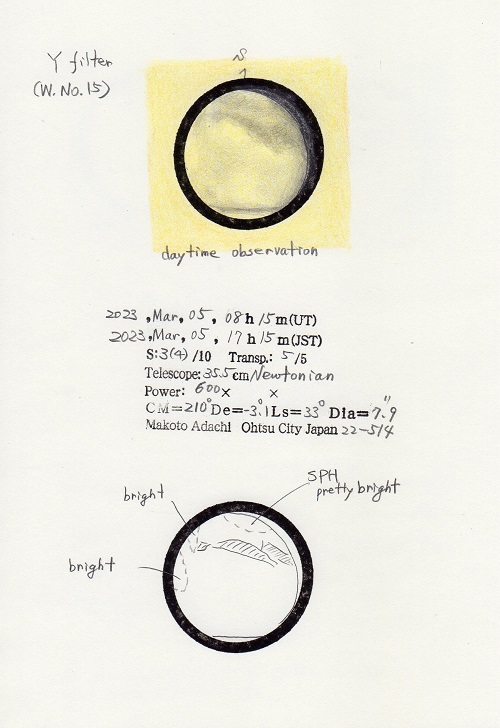 Y filter
(W. No. 15)
S
daytime observation
2023, Mar, 05, 08h 15m(UT)
2023, Mar, 05, 17h 15m(JST)
S:3(4)/10 Transp.: 5/5
Telescope: 35.5cm Newtonian
Power: 600× ×
CM=210°De=-3.1Ls=33°Dia=7.9"
Makoto Adachi Ohtsu City Japan 22-514
SPH
pretty bright
bright
bright